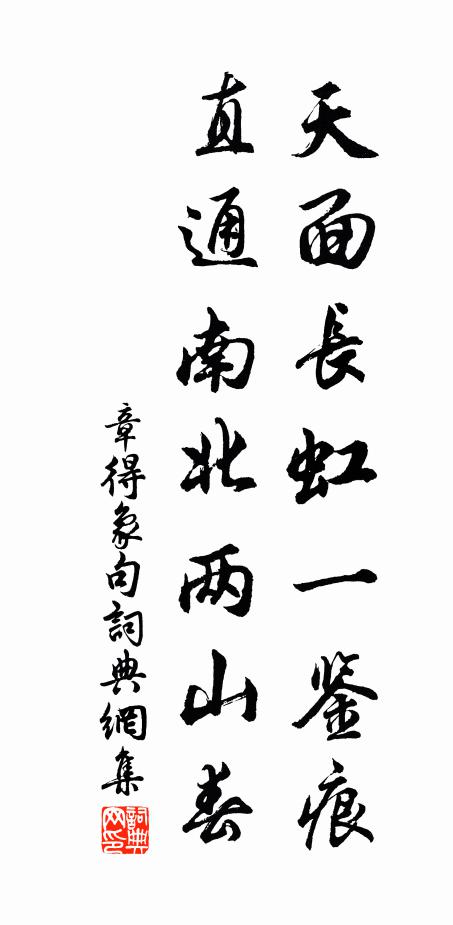 天面長虹一鉴痕
直通南北两山春
章得象句詞典網集
詞典
网印